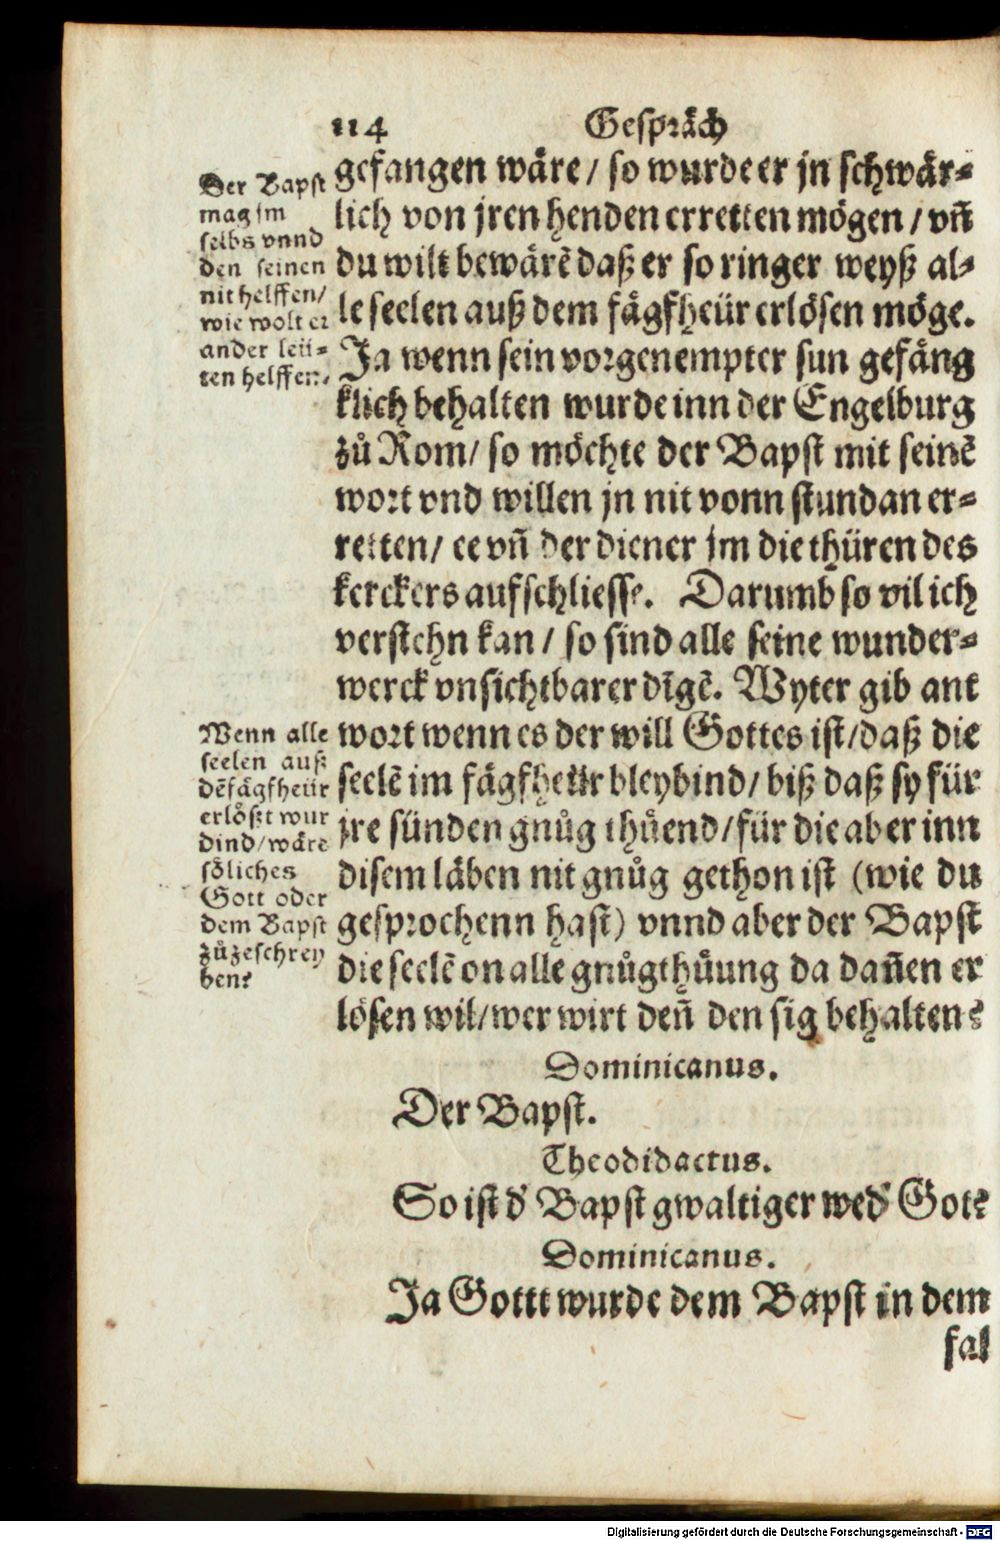 114 Gespräch
Der Bapst
mag jm
selbs vnnd
den seinen
nit helffen/
wie wolt er
ander leü=
ten helffen.
gefangen wäre/ so wurde er jn schwär=
lich von jren henden erretten mögen/ vn̄
du wilt bewärē daß er so ringer weyß al=
le seelen auß dem fägfheür erlösen möge.
Ja wenn sein vorgenempter sun gefäng
klich behalten wurde inn der Engelburg
zů Rom/ so möchte der Bapst mit seinē
wort vnd willen jn nit vonn stundan er=
retten/ ee vn̄ der diener jm die thüren des
kerckers aufschliesse. Darumb so vil ich
verstehn kan/ so sind alle seine wunder=
werck vnsichtbarer dīgē. Wyter gib ant
Wenn alle
seelen auß
dē fägfheür
erlößt wur
dind/wäre
söliches
Gott oder
dem Bapst
zůzeschrey
ben?
wort wenn es der will Gottes ist/daß die
seelē im fägfheür bleybind/ biß daß sy für
jre sünden gnůg thüend/für die aber inn
disem läben nit gnůg gethon ist (wie du
gesprochenn hast) vnnd aber der Bapst
die seelē on alle gnůgthüung da dan̄en er
lösen wil/wer wirt den̄ den sig behalten?
Dominicanus.
Der Bapst.
Theodidactus.
So ist d' Bapst gwaltiger wed' Got?
Dominicanus.
Ja Gottt wurde dem Bapst in dem
fal
Digitalisierung gefördert durch die Deutsche Forschungsgemeinschaft - DFG